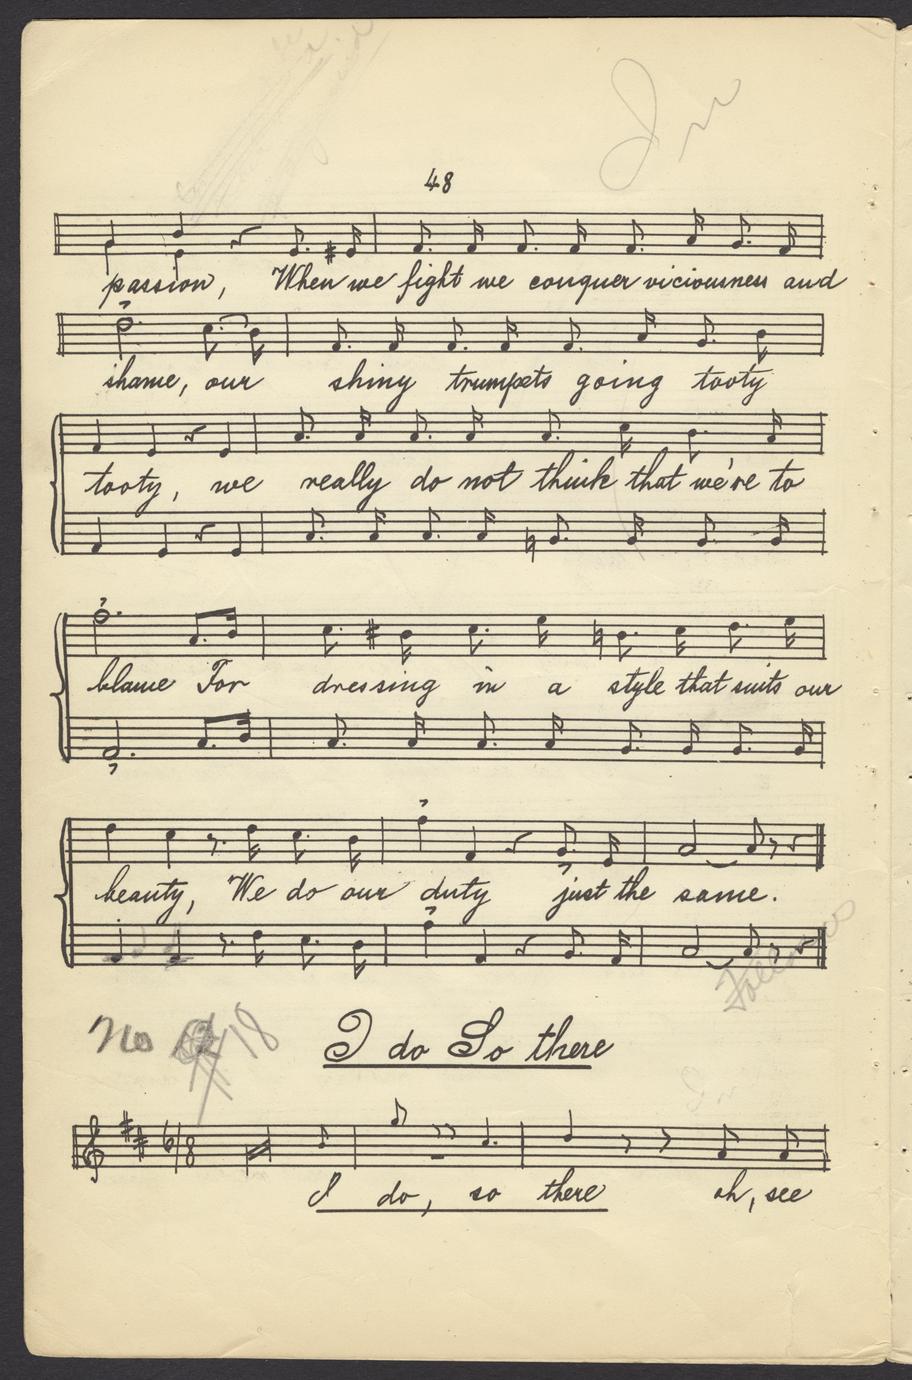 48
passion, When we fight we conquer viciousness and
shame, our shiny trumpets going tooty
tooty, we really do not think that we're to
blame For dressing in a style that suits our
beauty, We do our duty just the same.
Follows
No 18
I do So there
6/8
I do, so there oh, see